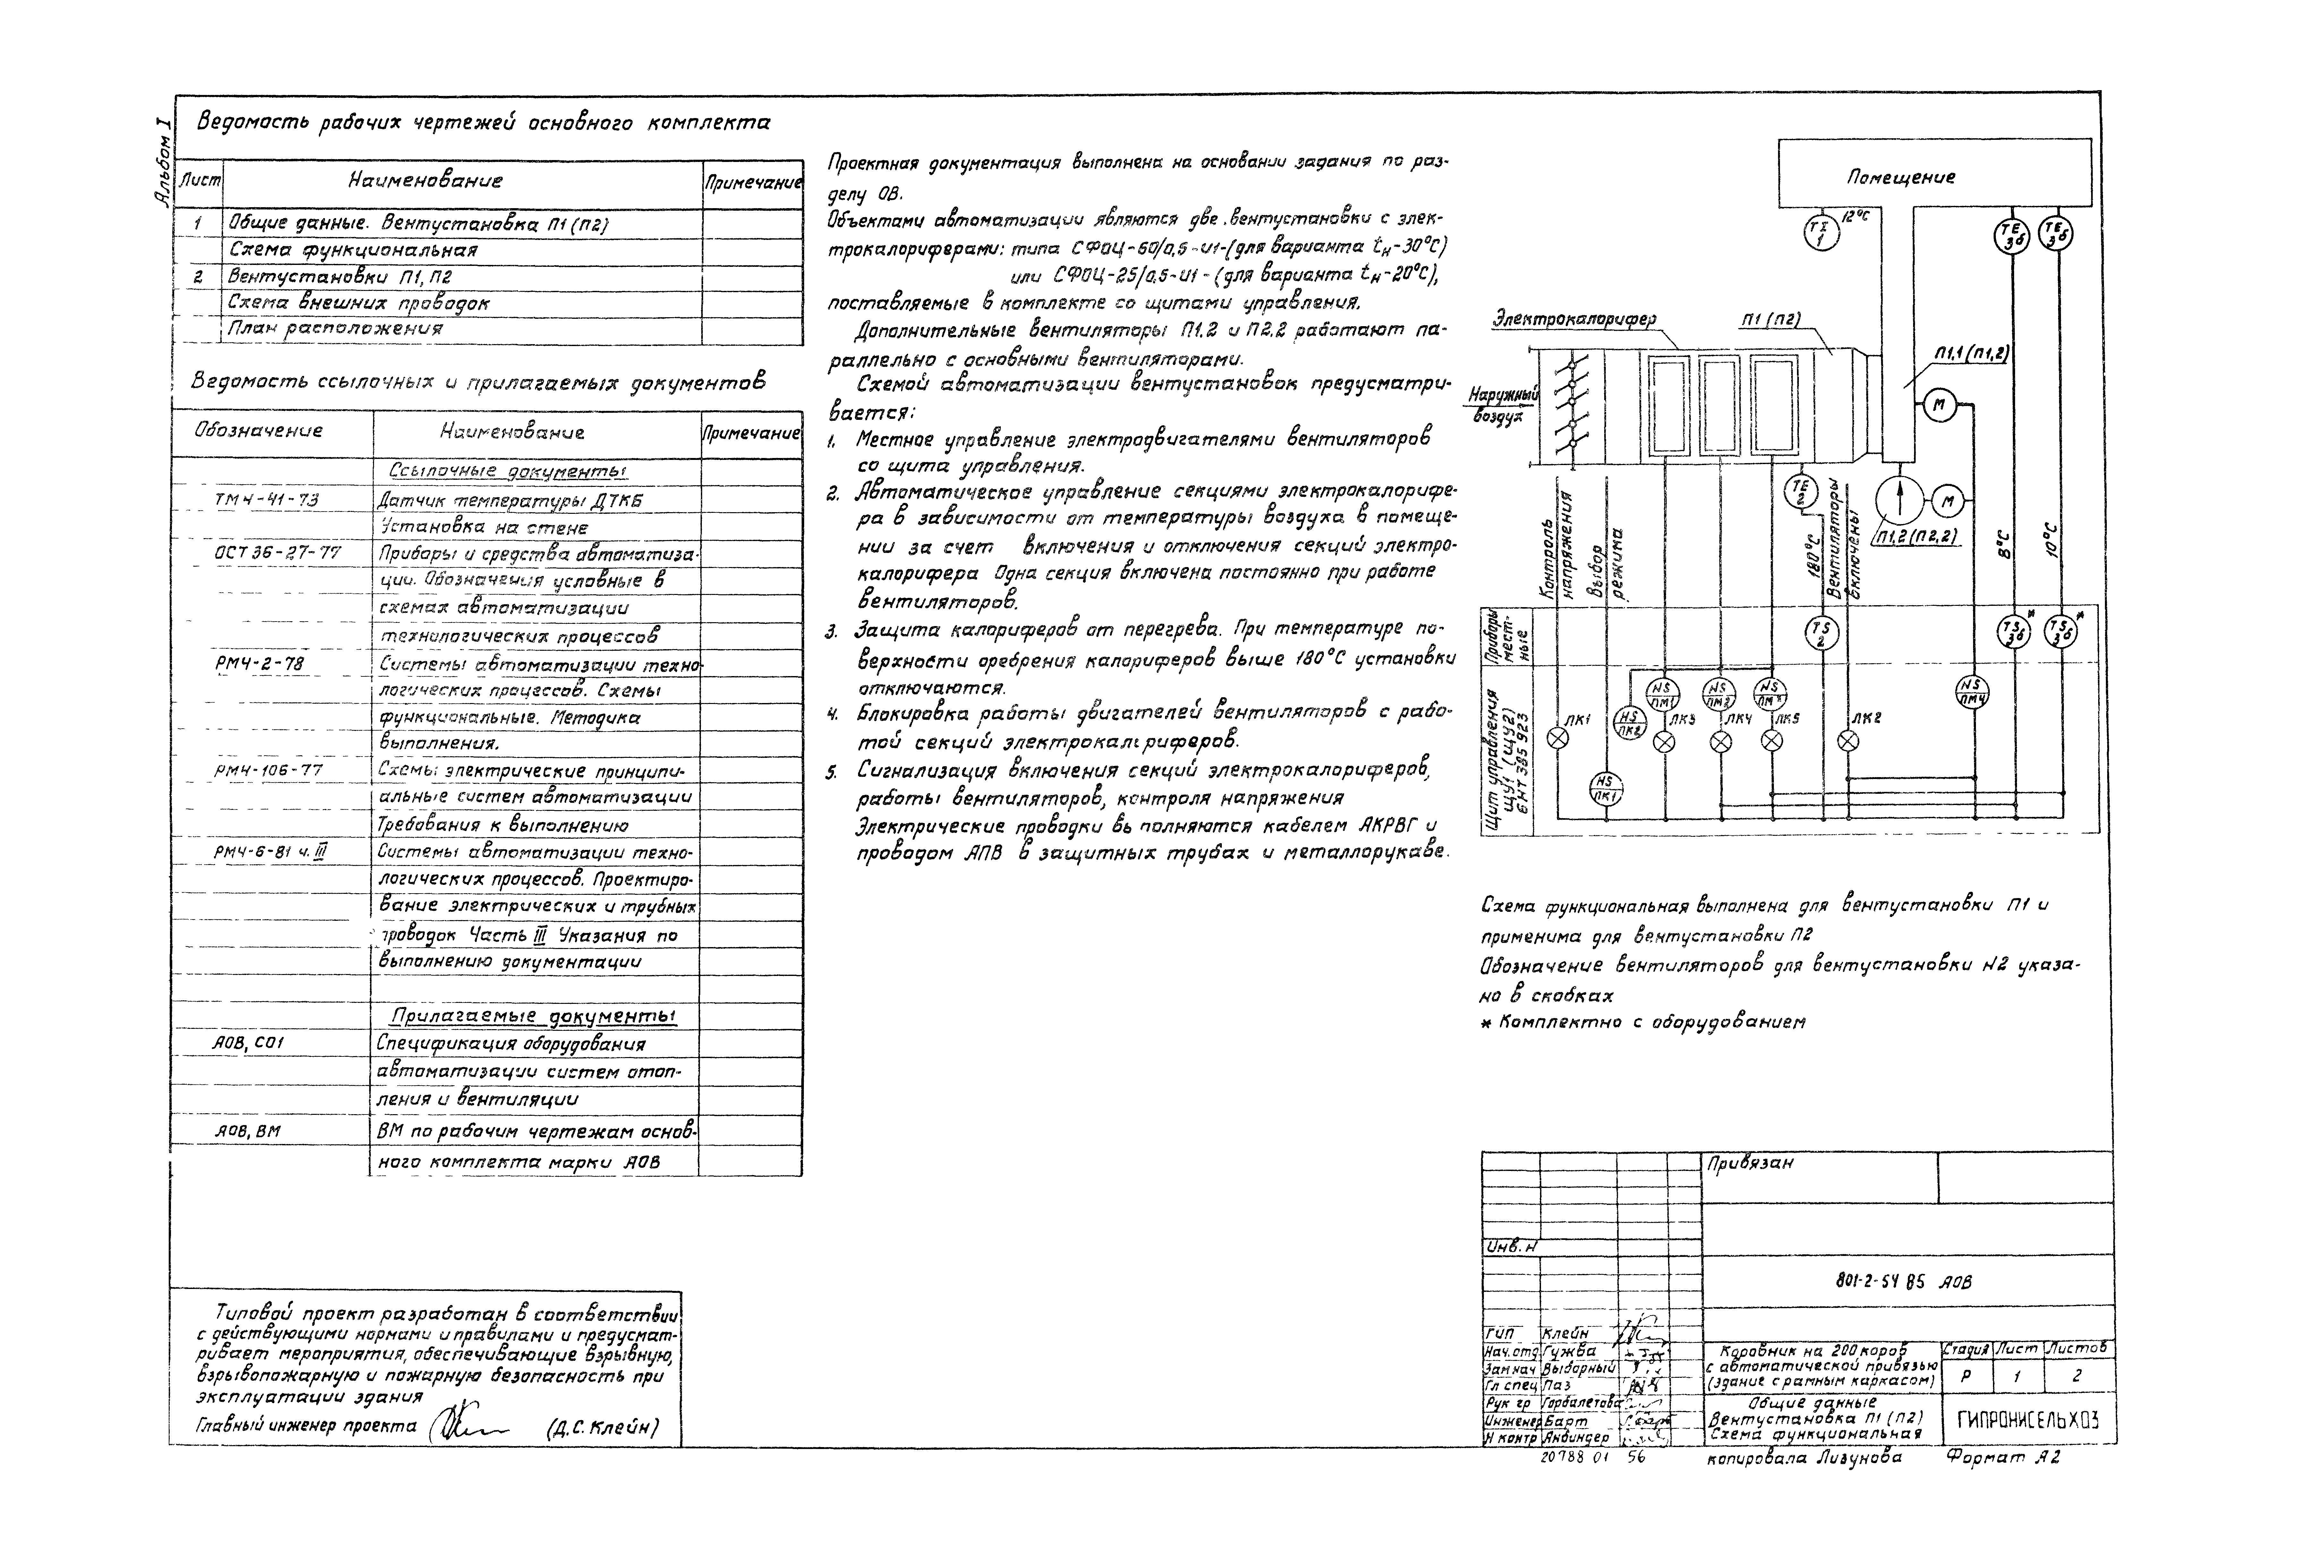 Альбом I
Ведомость рабочих чертежей основного комплекта
Лист Наименование Примечание
1 Общие данные. Вентустановка П1 (П2)
Схема функциональная
2 Вентустановки П1, П2
Схема внешних проводок
План расположения
Ведомость ссылочных и прилагаемых документов
Обозначение Наименование Примечание
Ссылочные документы
ТМ4-41-73 Датчик температуры ДТКБ
Установка на стене
ОСТ 36-27-77 Приборы и средства автоматиза-
ции. Обозначения условные в
схемах автоматизации
технологических процессов
РМ4-2-78 Системы автоматизации техно-
логических процессов. Схемы
функциональные. Методика
выполнения.
РМ4-106-77 Схемы электрические принципи-
альные систем автоматизации
Требования к выполнению
РМ4-6-81 ч. III Системы автоматизации техно-
логических процессов. Проектиро-
вание электрических и трубных
проводок Часть III Указания по
выполнению документации
Прилагаемые документы
АОВ, СО1 Спецификация оборудования
автоматизации систем отоп-
ления и вентиляции
АОВ, ВМ ВМ по рабочим чертежам основ-
ного комплекта марки АОВ
Типовой проект разработан в соответствии
с действующими нормами и правилами и предусмат-
ривает мероприятия, обеспечивающие взрывную,
взрывопожарную и пожарную безопасность при
эксплуатации здания
Главный инженер проекта (Д.С. Клейн)
Проектная документация выполнена на основании задания по раз-
делу ОВ.
Объектами автоматизации являются две вентустановки с элек-
трокалориферами: типа СФОЦ-60/0,5-И1-(для варианта tн-30°С)
или СФОЦ-25/0,5-И1-(для варианта tн-20°С),
поставляемые в комплекте со щитами управления.
Дополнительные вентиляторы П1.2 и П2.2 работают па-
раллельно с основными вентиляторами.
Схемой автоматизации вентустановок предусматри-
вается:
1. Местное управление электродвигателями вентиляторов
со щита управления.
2. Автоматическое управление секциями электрокалорифе-
ра в зависимости от температуры воздуха в помеще-
нии за счет включения и отключения секций электро-
калорифера Одна секция включена постоянно при работе
вентиляторов.
3. Защита калориферов от перегрева. При температуре по-
верхности оребрения калориферов выше 180°С установки
отключаются.
4. Блокировка работы двигателей вентиляторов с рабо-
той секций электрокалориферов.
5. Сигнализация включения секций электрокалориферов,
работы вентиляторов, контроля напряжения
Электрические проводки выполняются кабелем АКРВГ и
проводом АПВ в защитных трубах и металлорукаве.
Помещение
TE 1 12°С
TE 3б
TE 3б
Электрокалорифер
П1 (П2)
П1,1 (П1,2)
Наружный
воздух
М
М
TE 2
П1,2 (П2,2)
Контроль
напряжения
Выбор
режима
180°С
Вентиляторы
включены
8°С
10°С
Приборы
мест-
ные
TS 2
TS 3б *
TS 3б *
Щит управления
ЩУ1 (ЩУ2)
ЕНТ 385 923
HS ПМ1
HS ПМ2
HS
HS ПМ4
ЛК1
HS ПК2
ЛК3
ЛК4
ЛК5
ЛК2
HS ПК1
Схема функциональная выполнена для вентустановки П1 и
применима для вентустановки П2
Обозначение вентиляторов для вентустановки N2 указа-
но в скобках
* Комплектно с оборудованием
Привязан
Инв. N
801-2-54 85 АОВ
ГИП Клейн
Нач. отд Гужва
Зам нач Выборный
Гл спец Паз
Рук гр Горбалетова
Инженер Барт
Н контр Янбиндер
Коровник на 200 коров
с автоматической привязью
(здание с рамным каркасом)
Стадия Лист Листов
Р 1 2
Общие данные
Вентустановка П1 (П2)
Схема функциональная
ГИПРОНИСЕЛЬХОЗ
20788 01 56
копировала Лизунова
Формат А2